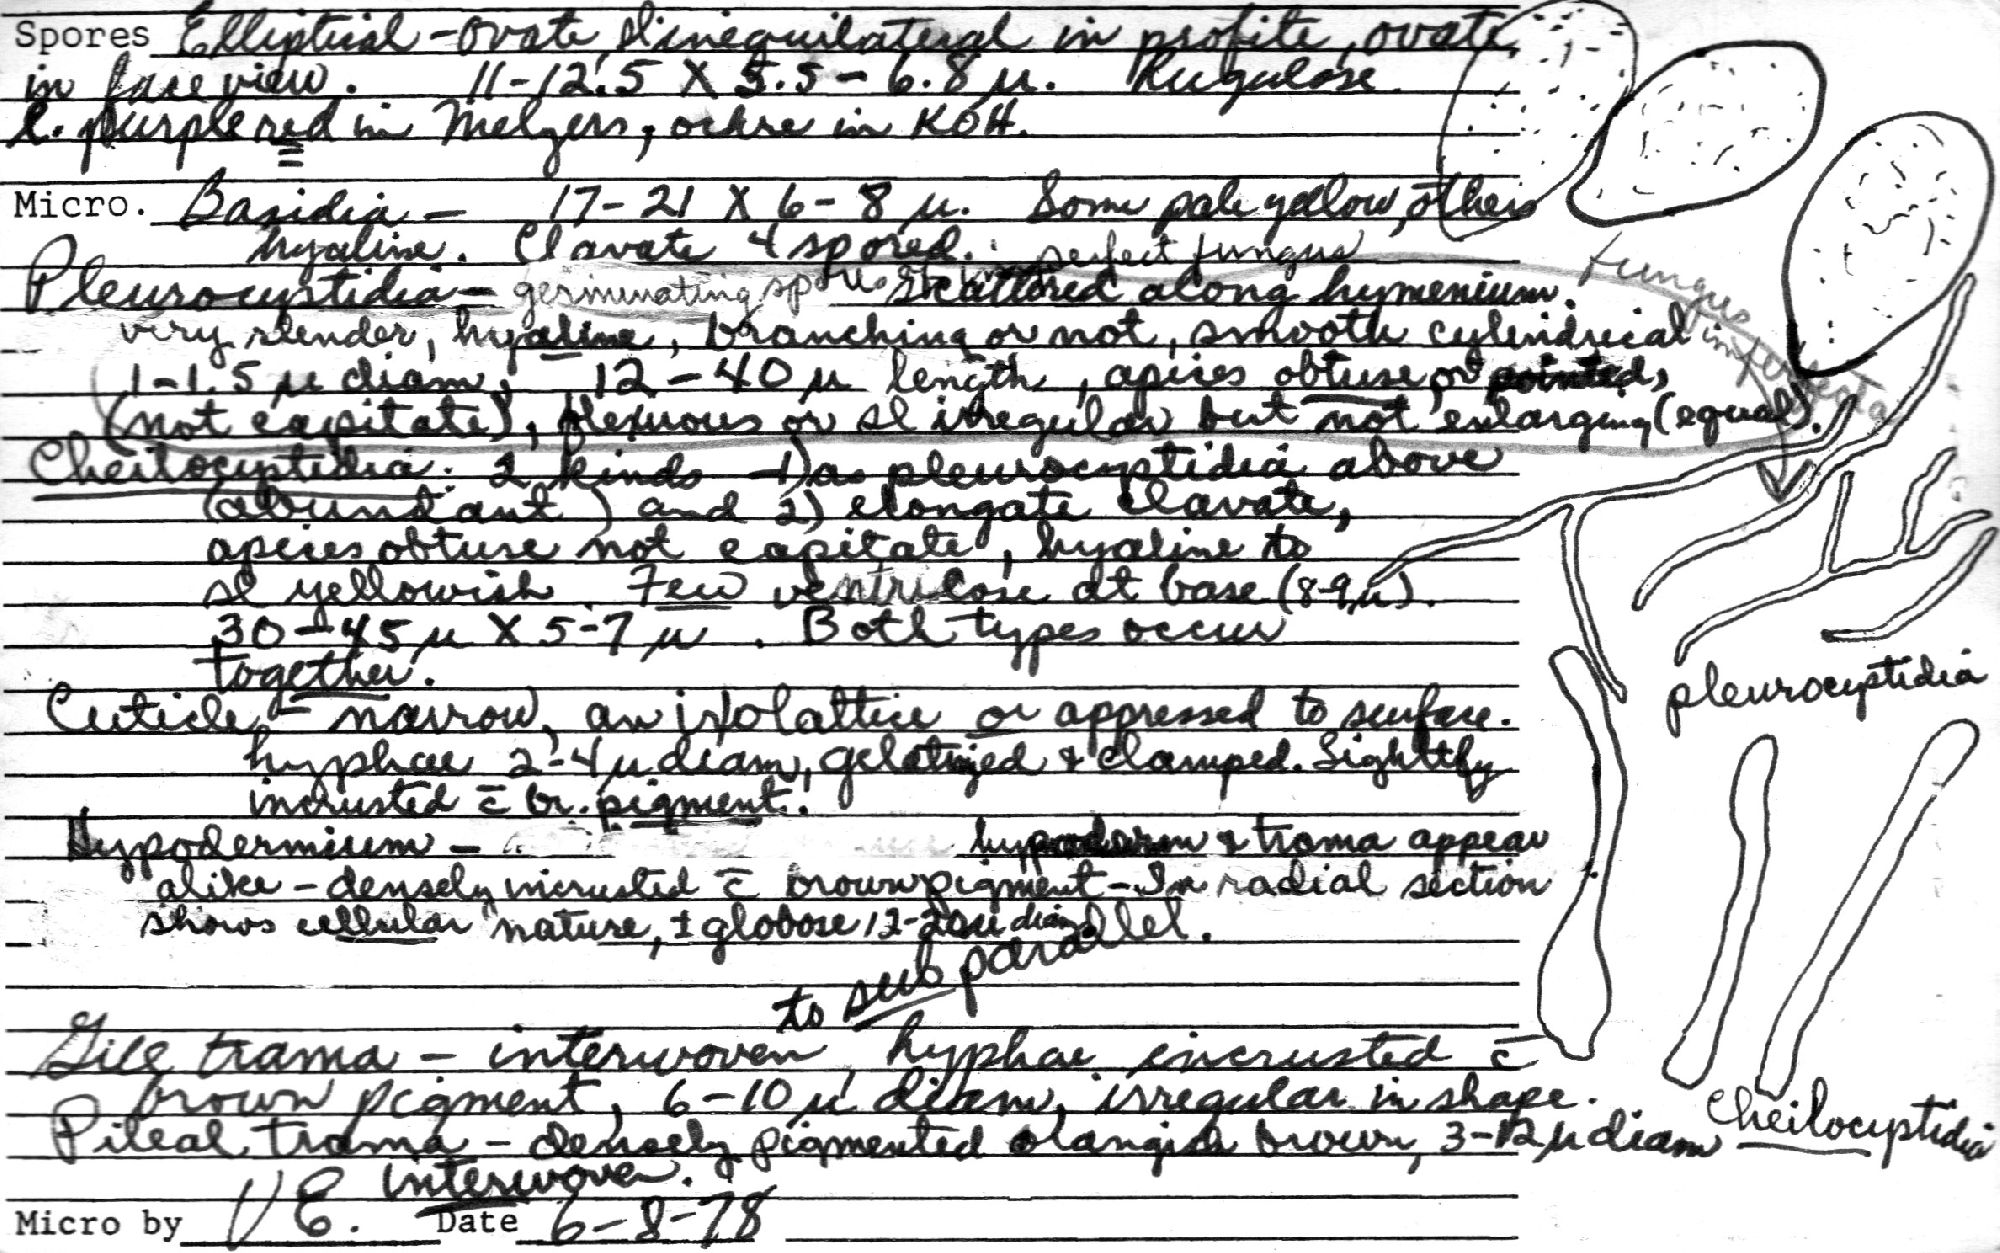 Spores Elliptical-ovate, sl inequilateral in profile, ovate
in face view. 11-12.5 X 5.5-6.8 µ. Rugulose
l. purple red in Melzers, ochre in KOH.
Micro. Basidia - 17-21 X 6-8 µ. Some pale yellow, others
hyaline. Clavate 4 spored. perfect fungus
Pleurocystidia - germinating spores scattered along hymenium.
fungus imperfecta
very slender, hyaline, branching or not, smooth cylindrical
1-1.5 µ diam, 12-40 µ length, apices obtuse, or pointed,
(not capitate), flexuous or sl irregular but not enlarging (equal).
Cheilocystidia. 2 kinds - 1) as pleurocystidia above
(abundant) and 2) elongate clavate,
apices obtuse not capitate, hyaline to
sl yellowish. Few ventricose at base (8-9µ).
30-45 µ X 5-7 µ. Both types occur
together.
pleurocystidia
Cuticle - narrow, an ixolattice or appressed to surface.
hyphae 2-4 µ diam, gelatinized & clamped. Sightlty
incrusted c̄ br. pigment.
Hypodermium - hypoderm & trama appear
alike - densely incrusted c̄ brown pigment - In radial section
shows cellular nature, ± globose 12-20µ diam.
to subparallel.
Gill trama - interwoven, hyphae incrusted c̄
brown pigment, 6-10 µ diam, irregular in shape.
Cheilocystidia
Pileal trama - densely pigmented orangish brown, 3-12 µ diam
interwoven.
Micro by VE. Date 6-8-78